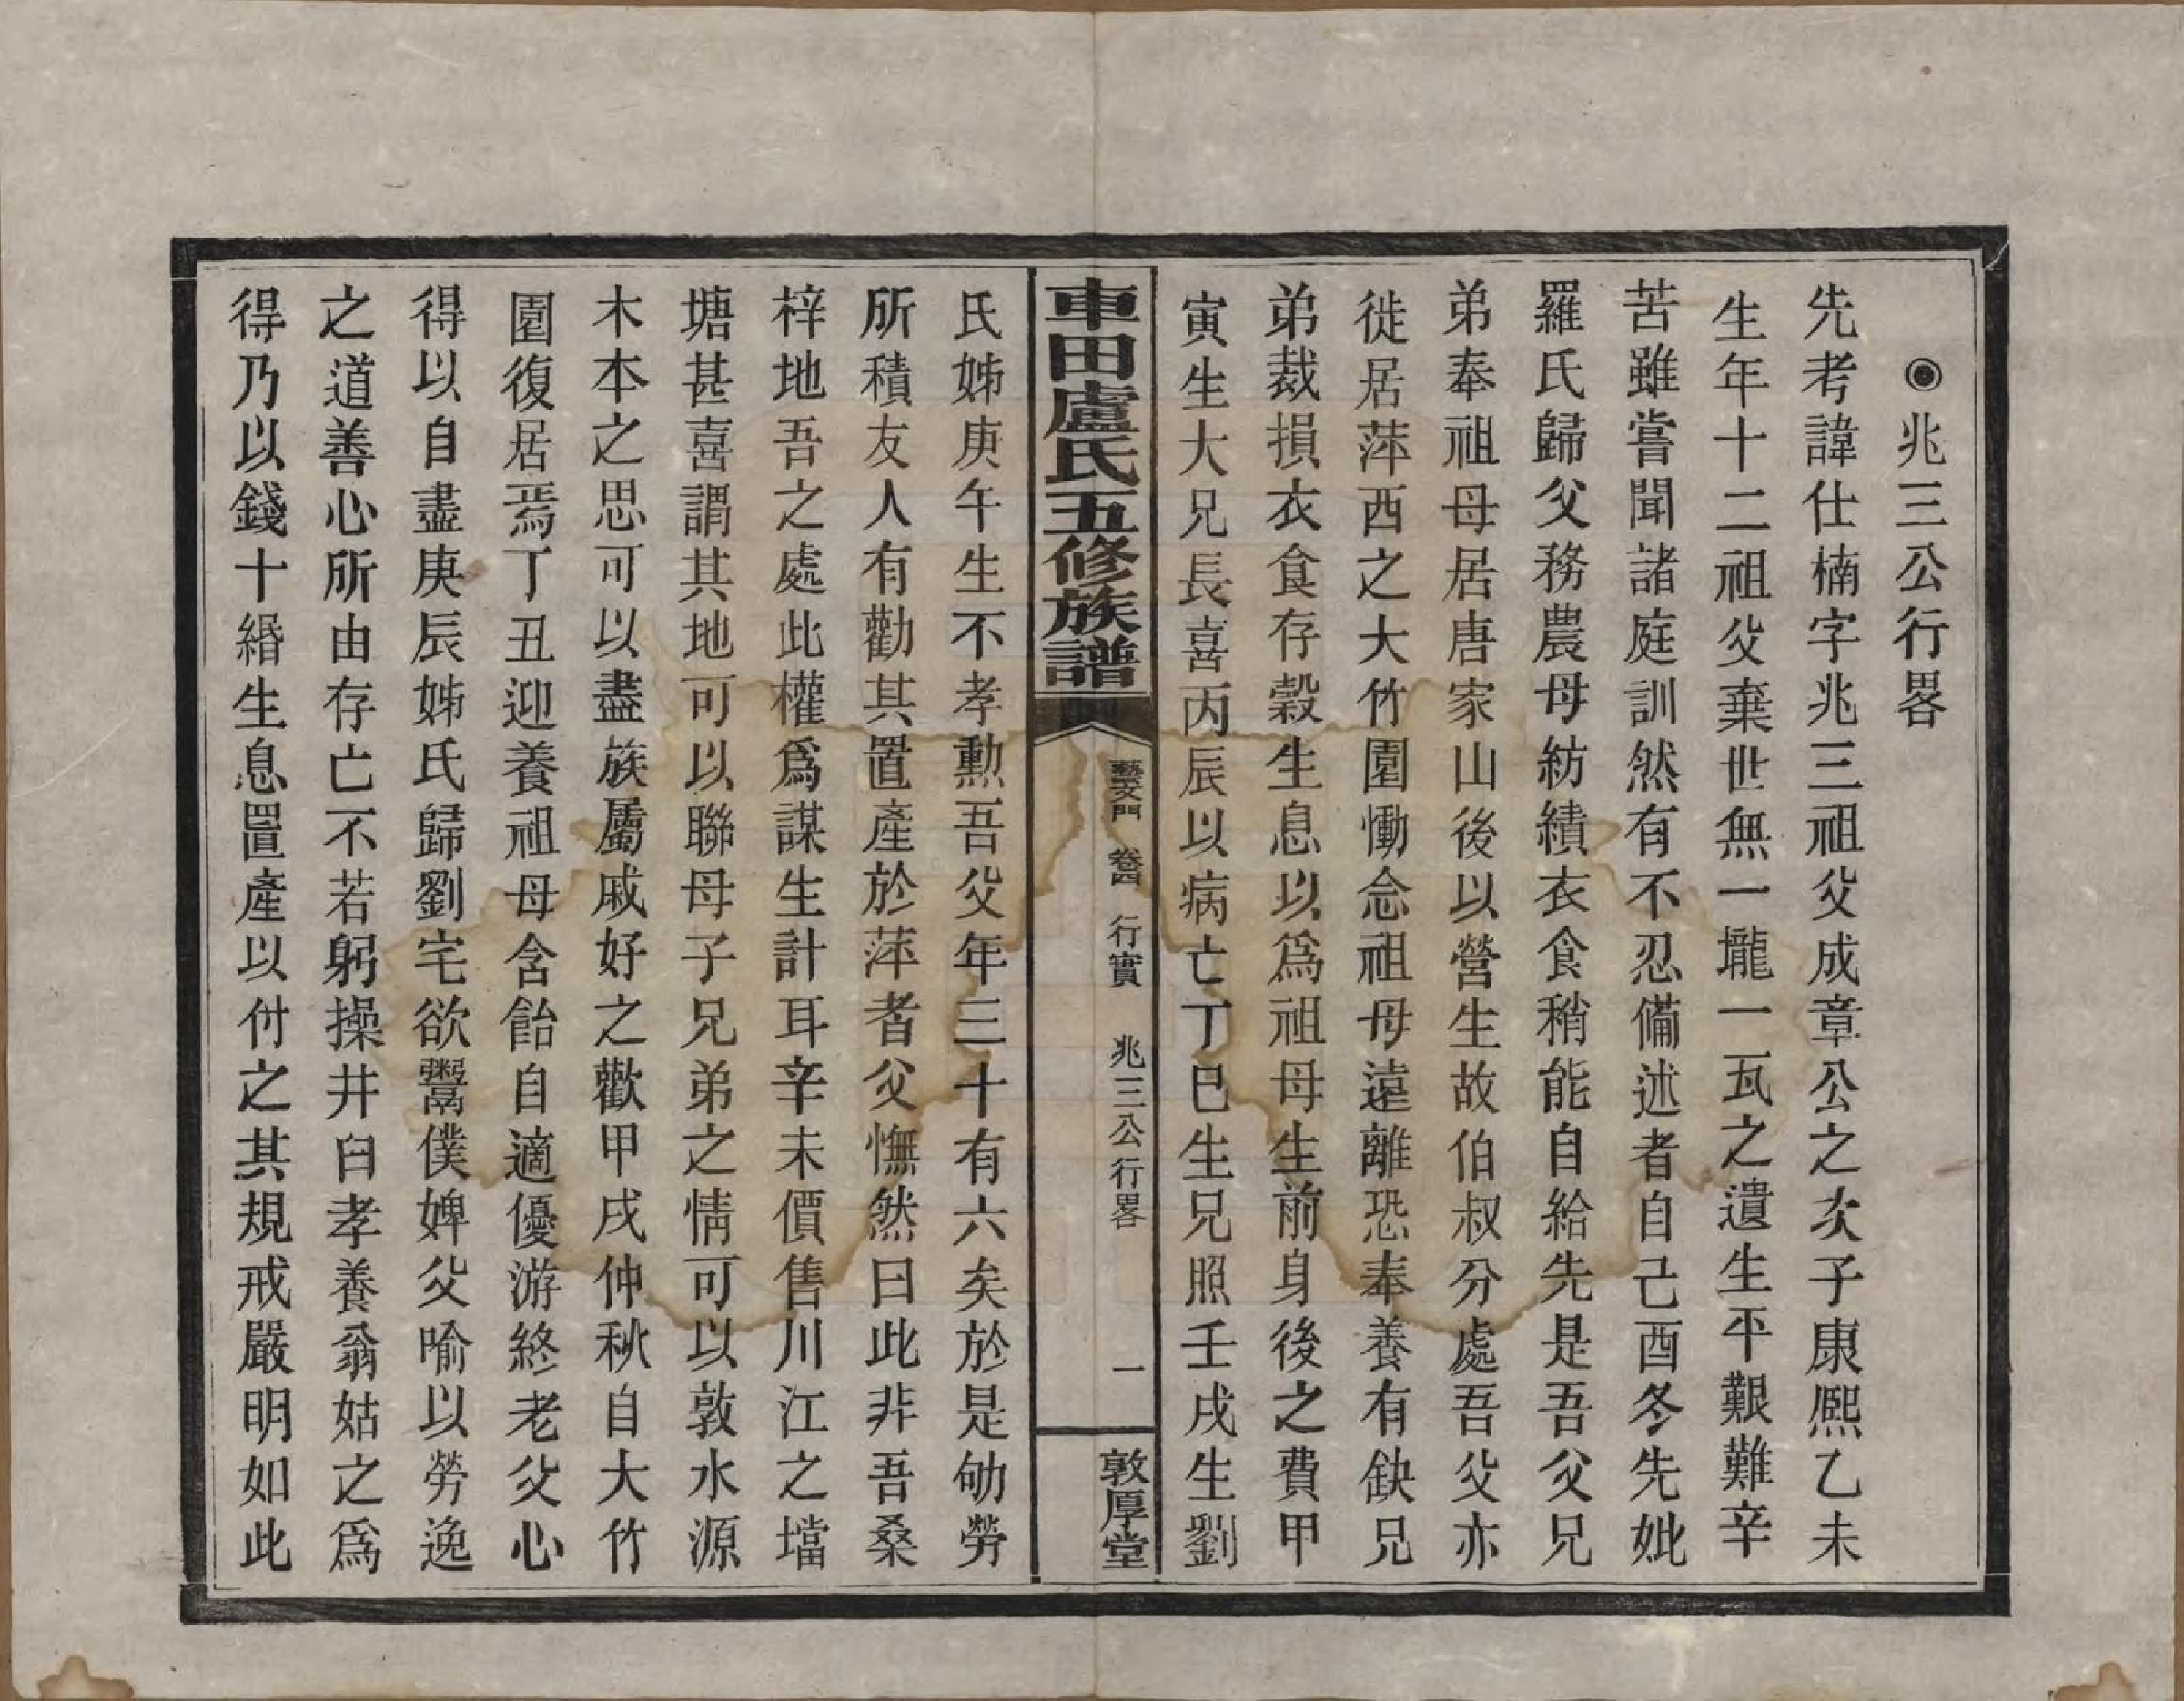 ◉兆三公行畧
先考諱仕楠字兆三祖父成章公之次子康熙乙未
生年十二祖父棄世無一壠一瓦之遺生平艱難辛
苦雖嘗聞諸庭訓然有不忍備述者自己酉冬先妣
羅氏歸父務農母紡績衣食稍能自給先是吾父兄
弟奉祖母居唐家山後以營生故伯叔分處吾父亦
徙居萍西之大竹園慟念祖母遠離恐奉養有缺兄
弟裁損衣食存穀生息以爲祖母生前身後之費甲
寅生大兄長喜丙辰以病亡丁巳生兄照壬戌生劉
車田盧氏五修族譜
藝文門 卷四 行實 兆三公行畧 一
敦厚堂
氏姊庚午生不孝勲吾父年三十有六矣於是劬勞
所積友人有勸其置產於萍者父憮然曰此非吾桑
梓地吾之處此權爲謀生計耳辛未價售川江之壋
塘甚喜謂其地可以聯母子兄弟之情可以敦水源
木本之思可以盡族屬戚好之歡甲戌仲秋自大竹
園復居焉丁丑迎養祖母含飴自適優游終老父心
得以自盡庚辰姊氏歸劉宅欲鬻僕婢父喻以勞逸
之道善心所由存亡不若躬操井臼孝養翁姑之爲
得乃以錢十緡生息置產以付之其規戒嚴明如此